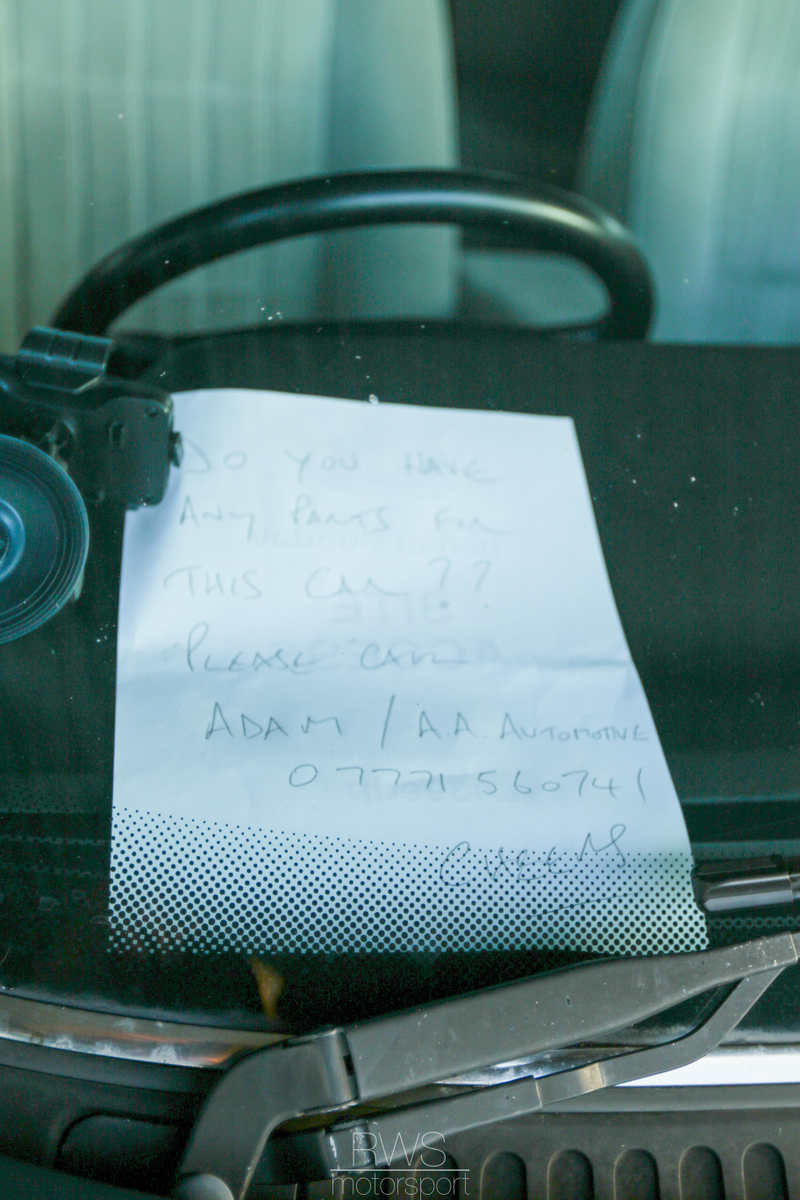 DO YOU HAVE
ANY PARTS FOR
THIS CAR ??
PLEASE CALL
ADAM / A.A. AUTOMOTIVE
07771 560741
CHEERS
RWS
motorsport